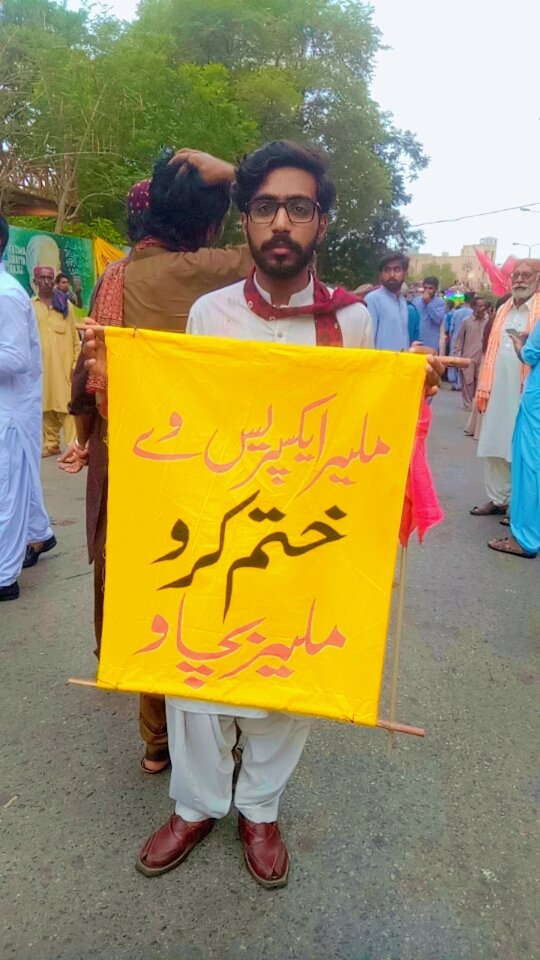 ملیر ایکسپریس وے
ختم کرو
ملیر بچاو